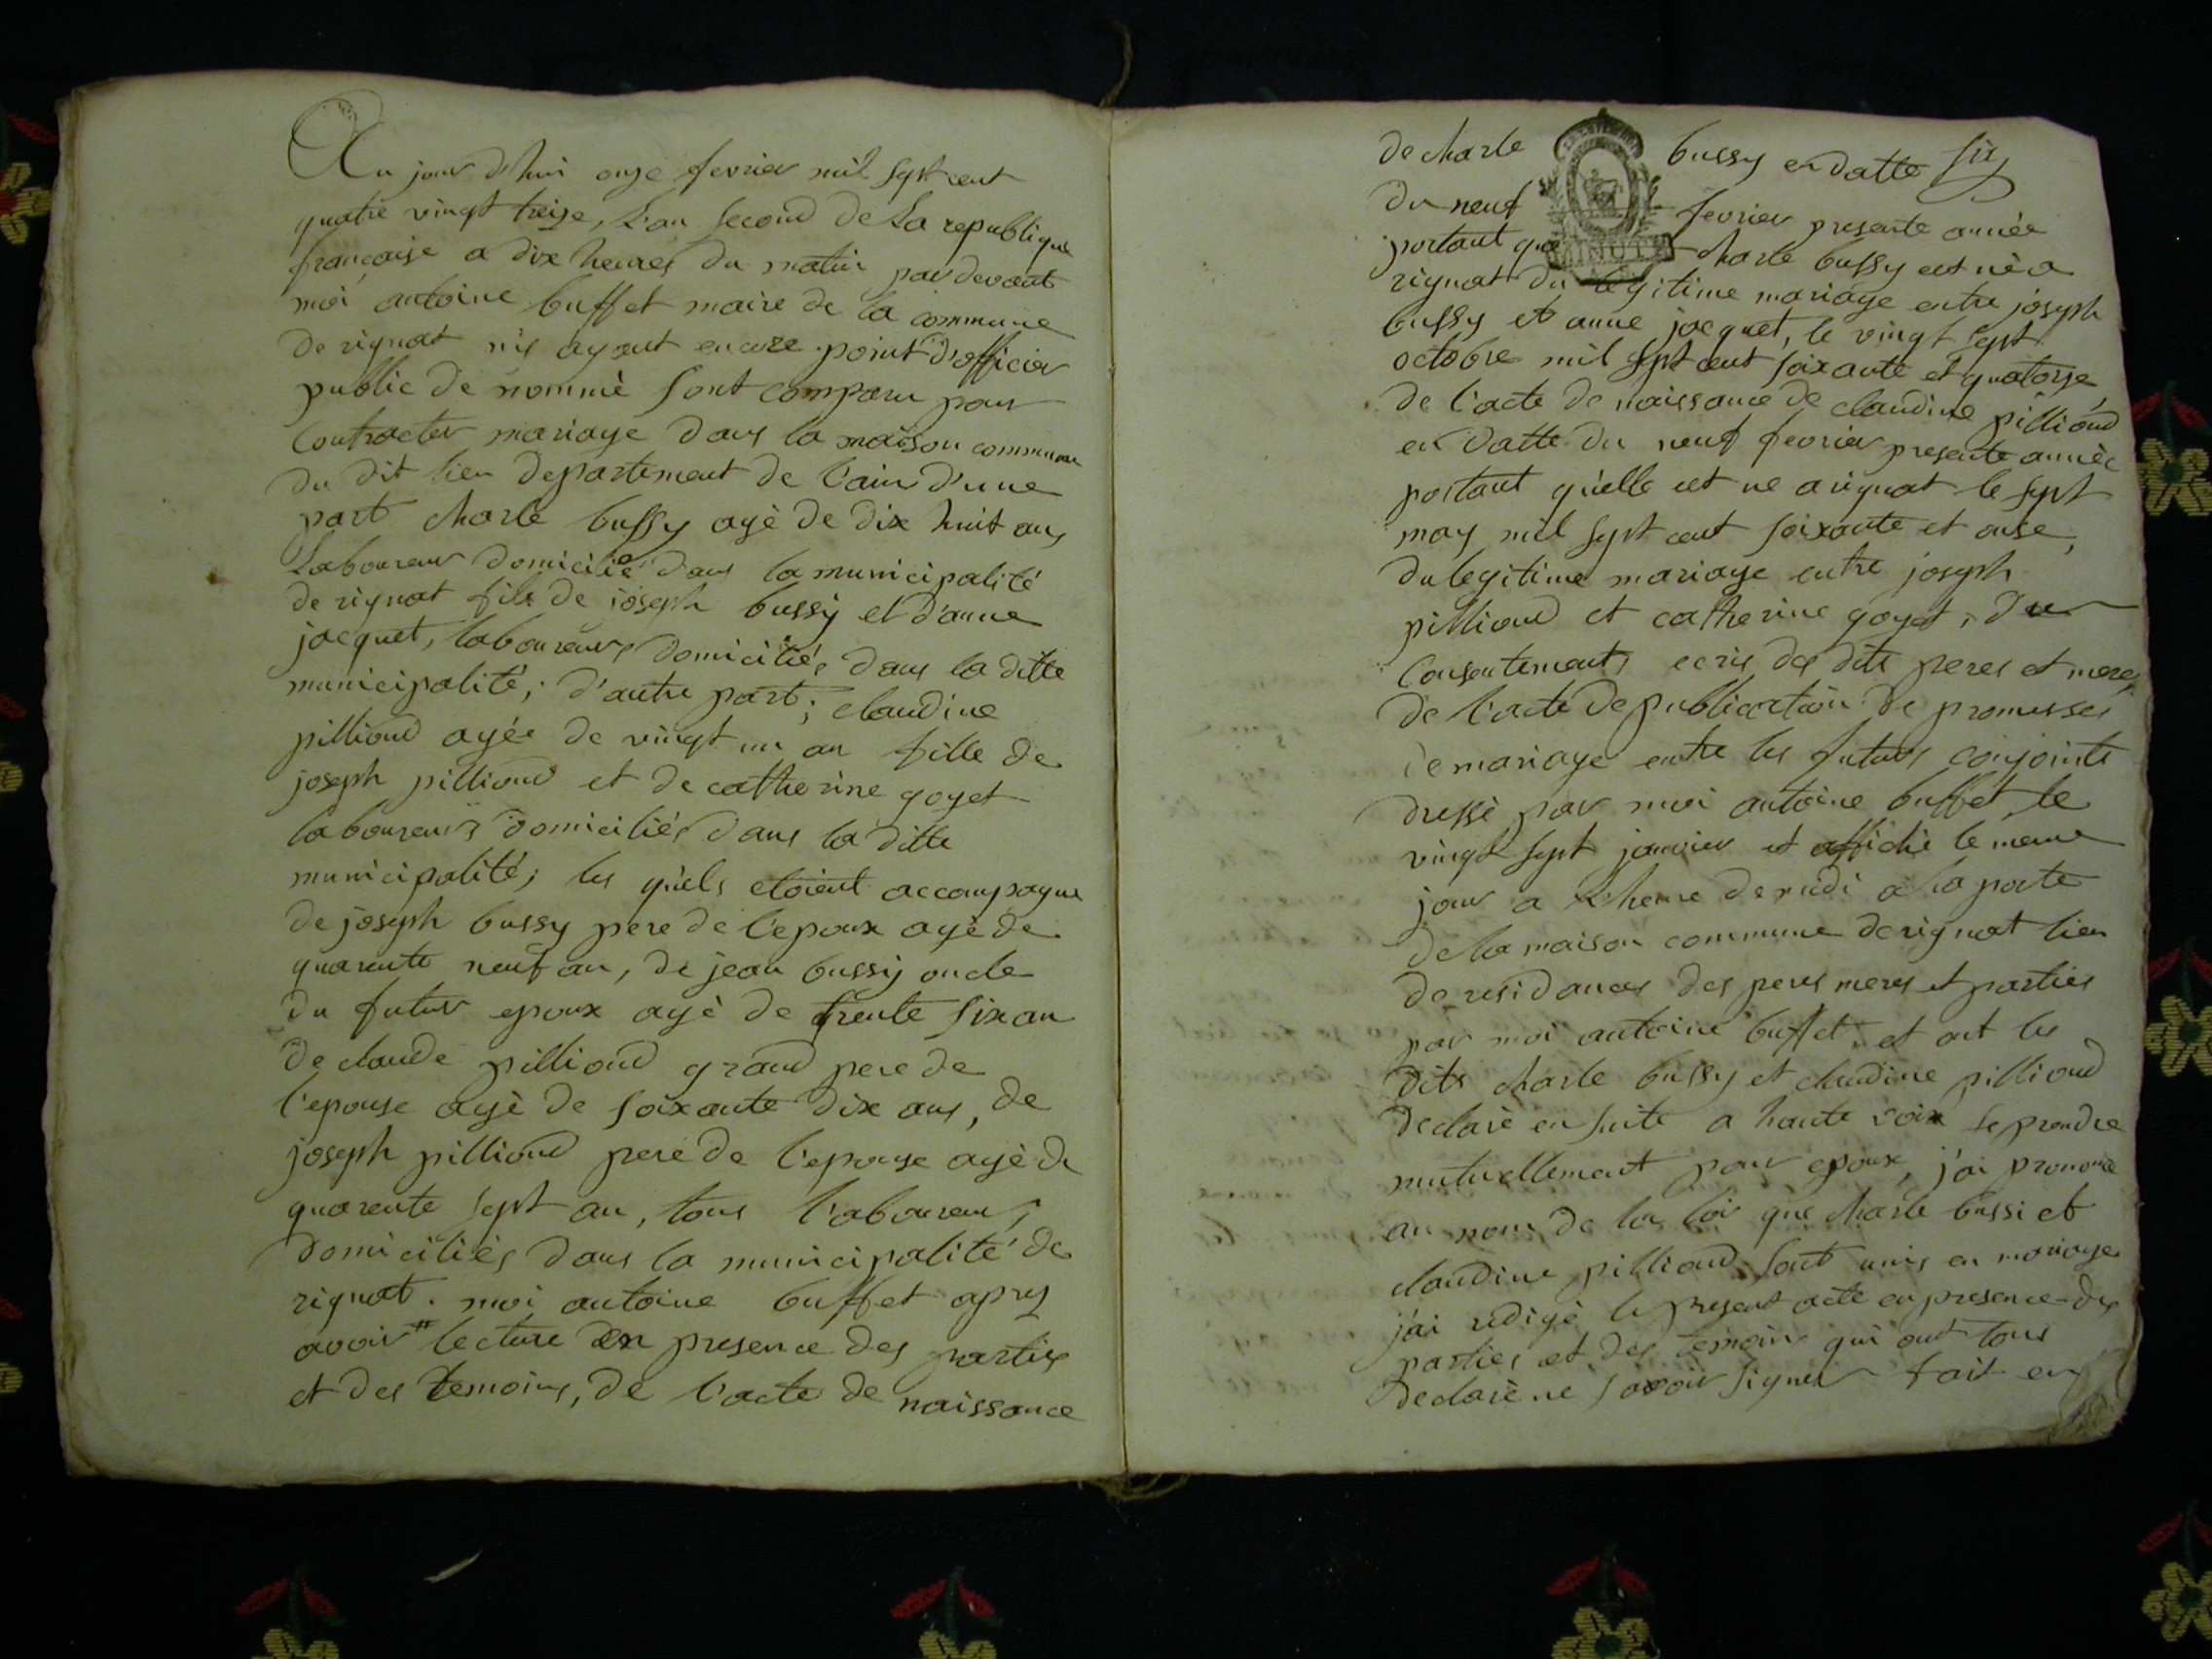 Au jour d'hui onze fevrier mil sept cent
quatre vingt treize, L'an second de La republique
françaisse a dix heures du matin par devant
moi antoine buffet maire de la commune
de rignat niy ayant encore point d'officier
public de nommè sont comparu pour
Contracter mariage dans la maison commune
du dit lieu departement de l'ain d'une
part charle bussy agè de dix huit ans
Laboureur domicilié dans la municipalité
de rignat fils de joseph bussy et d'anne
jacquet, laboureurs domiciliés dans la ditte
municipalité; d'autre part; claudine
pilliond agée de vingt un an fille de
joseph pilliond et de catherine goyet
laboureurs domiciliés dans la ditte
municipalité; les quels etoient accompagne
de joseph bussy pere de l'epoux agè de
quarente neuf an, de jean bussy oncle
du futur epoux agè de trente six an
de claude pilliond grand pere de
l'epouse agè de soixante dix ans, de
joseph pilliond pere de l'epouse agè de
quarente sept an, tous laboureurs
domiciliés dans la municipalité de
rignat. moi antoine buffet apres
avoir # lecture en presence des parties
et des temoins, de l'acte de naissance
de charle bussy en datte six
du neuf fevrier presente année
MINUTE
portant que charle bussy est nè a
rignat du legitime mariage entre joseph
bussy et anne jacquet, le vingt sept
octobre mil sept cent soixante et quatorze,
de l'acte de naissance de claudine pilliond
en datte du neuf fevrier presente année
portant qu'elle est ne a rignat le sept
may mil sept cent soixante et onse,
du legitime mariage entre joseph
pilliond et catherine goyet, du
Consentements ecris des dits peres et meres
de l'acte de publication de promesses
de mariage entre les futurs conjoints
dressè par moi antoine buffet le
vingt sept janvier et affichè le meme
jour a l'heure de midi a la porte
de la maison commune de rignat lieu
de residances des peres meres et parties
par moi antoine buffet et ont les
dits charle bussy et claudine pilliond
declarè en suite a haute voix se prendre
mutuellement pour epoux, j'ai prononcé
au nom de la loi que charle bussi et
claudine pilliond sont unis en mariage
j'ai redigè le present acte en presence des
parties et des temoins qui ont tous
declarè ne savoir signer fait en